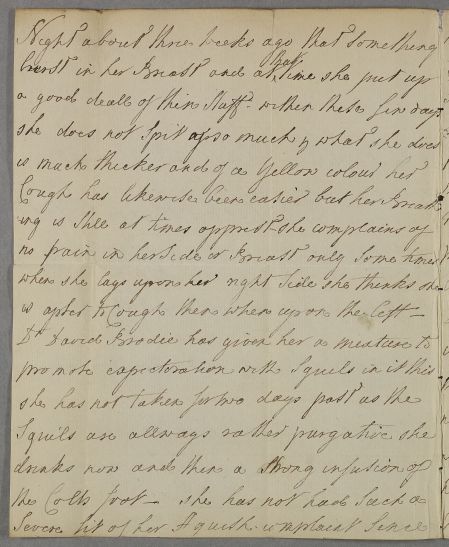 Night about three weeks ago that something
burst in her Breast and at that time she put up
a good deall of thin Stuff within these few days
she does not spit up so much & what she does
is much thicker and of a Yellow colour her
Cough has likewise been easier but her Breath
ing is still at times opprest she complains of
no pain in her Side or Breast only sometimes
when she lays upon her right Side she thinks she
is apter to Cough then when upon the left –
Dr David Brodie has given her a mixture to
promote expectoration with Squils in it this
she has not taken for two days past as the
Squils are allways rather purgative she
drinks now and then a Strong infusion of
the Colts foot – she has not had such a
Severe fit of her Aguish complaint Since